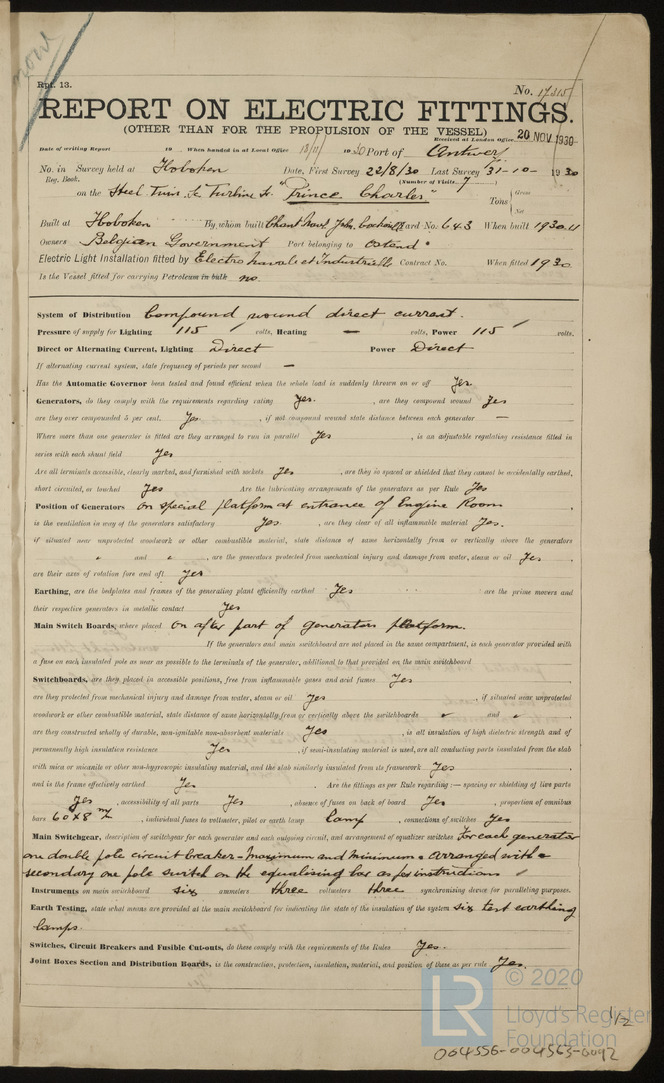 now
Rpt. 13.
No. 17315
REPORT ON ELECTRIC FITTINGS.
(OTHER THAN FOR THE PROPULSION OF THE VESSEL)
Received at London Office 20 NOV 1930
Date of writing Report 19 When handed in at Local Office 18/11/ 1930 Port of Antwerp
No. in Survey held at Hoboken Date, First Survey 22/8/30 Last Survey 31-10- 1930
Reg. Book. (Number of Visits 7)
on the Steel Twin Sc Turbine Sr. "Prince Charles" Tons { Gross Net
Built at Hoboken By whom built Chant. Nav. John Cockerill Yard No. 643 When built 1930.11
Owners Belgian Government Port belonging to Ostend
Electric Light Installation fitted by Electro Navale et Industrielle Contract No. When fitted 1930
Is the Vessel fitted for carrying Petroleum in bulk no.
System of Distribution Compound wound direct current.
Pressure of supply for Lighting 115 volts, Heating — volts, Power 115 volts.
Direct or Alternating Current, Lighting Direct Power Direct
If alternating current system, state frequency of periods per second —
Has the Automatic Governor been tested and found efficient when the whole load is suddenly thrown on or off Yes.
Generators, do they comply with the requirements regarding rating Yes. , are they compound wound Yes
are they over compounded 5 per cent. Yes , if not compound wound state distance between each generator —
Where more than one generator is fitted are they arranged to run in parallel Yes , is an adjustable regulating resistance fitted in
series with each shunt field Yes
Are all terminals accessible, clearly marked, and furnished with sockets Yes , are they so spaced or shielded that they cannot be accidentally earthed,
short circuited, or touched Yes Are the lubricating arrangements of the generators as per Rule Yes
Position of Generators On special platform at entrance of Engine Room
is the ventilation in way of the generators satisfactory Yes. , are they clear of all inflammable material Yes.
if situated near unprotected woodwork or other combustible material, state distance of same horizontally from or vertically above the generators
" and " , are the generators protected from mechanical injury and damage from water, steam or oil Yes
are their axes of rotation fore and aft Yes
Earthing, are the bedplates and frames of the generating plant efficiently earthed Yes are the prime movers and
their respective generators in metallic contact Yes
Main Switch Boards, where placed On after part of generators platform.
If the generators and main switchboard are not placed in the same compartment, is each generator provided with
a fuse on each insulated pole as near as possible to the terminals of the generator, additional to that provided on the main switchboard
Switchboards, are they placed in accessible positions, free from inflammable gases and acid fumes Yes
are they protected from mechanical injury and damage from water, steam or oil Yes , if situated near unprotected
woodwork or other combustible material, state distance of same horizontally from or vertically above the switchboards " and "
are they constructed wholly of durable, non-ignitable non-absorbent materials Yes , is all insulation of high dielectric strength and of
permanently high insulation resistance Yes , if semi-insulating material is used, are all conducting parts insulated from the slab
with mica or micanite or other non-hygroscopic insulating material, and the slab similarly insulated from its framework Yes
and is the frame effectively earthed Yes Are the fittings as per Rule regarding :— spacing or shielding of live parts
Yes , accessibility of all parts Yes , absence of fuses on back of board Yes , proportion of omnibus
bars 60x8 m/m , individual fuses to voltmeter, pilot or earth lamp lamp , connections of switches Yes
Main Switchgear, description of switchgear for each generator and each outgoing circuit, and arrangement of equalizer switches For each generator
one double pole circuit breaker - maximum and minimum & arranged with a
secondary one pole switch on the equalising bar as for instructions
Instruments on main switchboard six ammeters three voltmeters three synchronising device for paralleling purposes.
Earth Testing, state what means are provided at the main switchboard for indicating the state of the insulation of the system six test earthing
lamps.
Switches, Circuit Breakers and Fusible Cut-outs, do these comply with the requirements of the Rules Yes.
Joint Boxes Section and Distribution Boards, is the construction, protection, insulation, material, and position of these as per rule Yes.
LR © 2020
Lloyd's Register
Foundation
1/2
004556-004563-0092